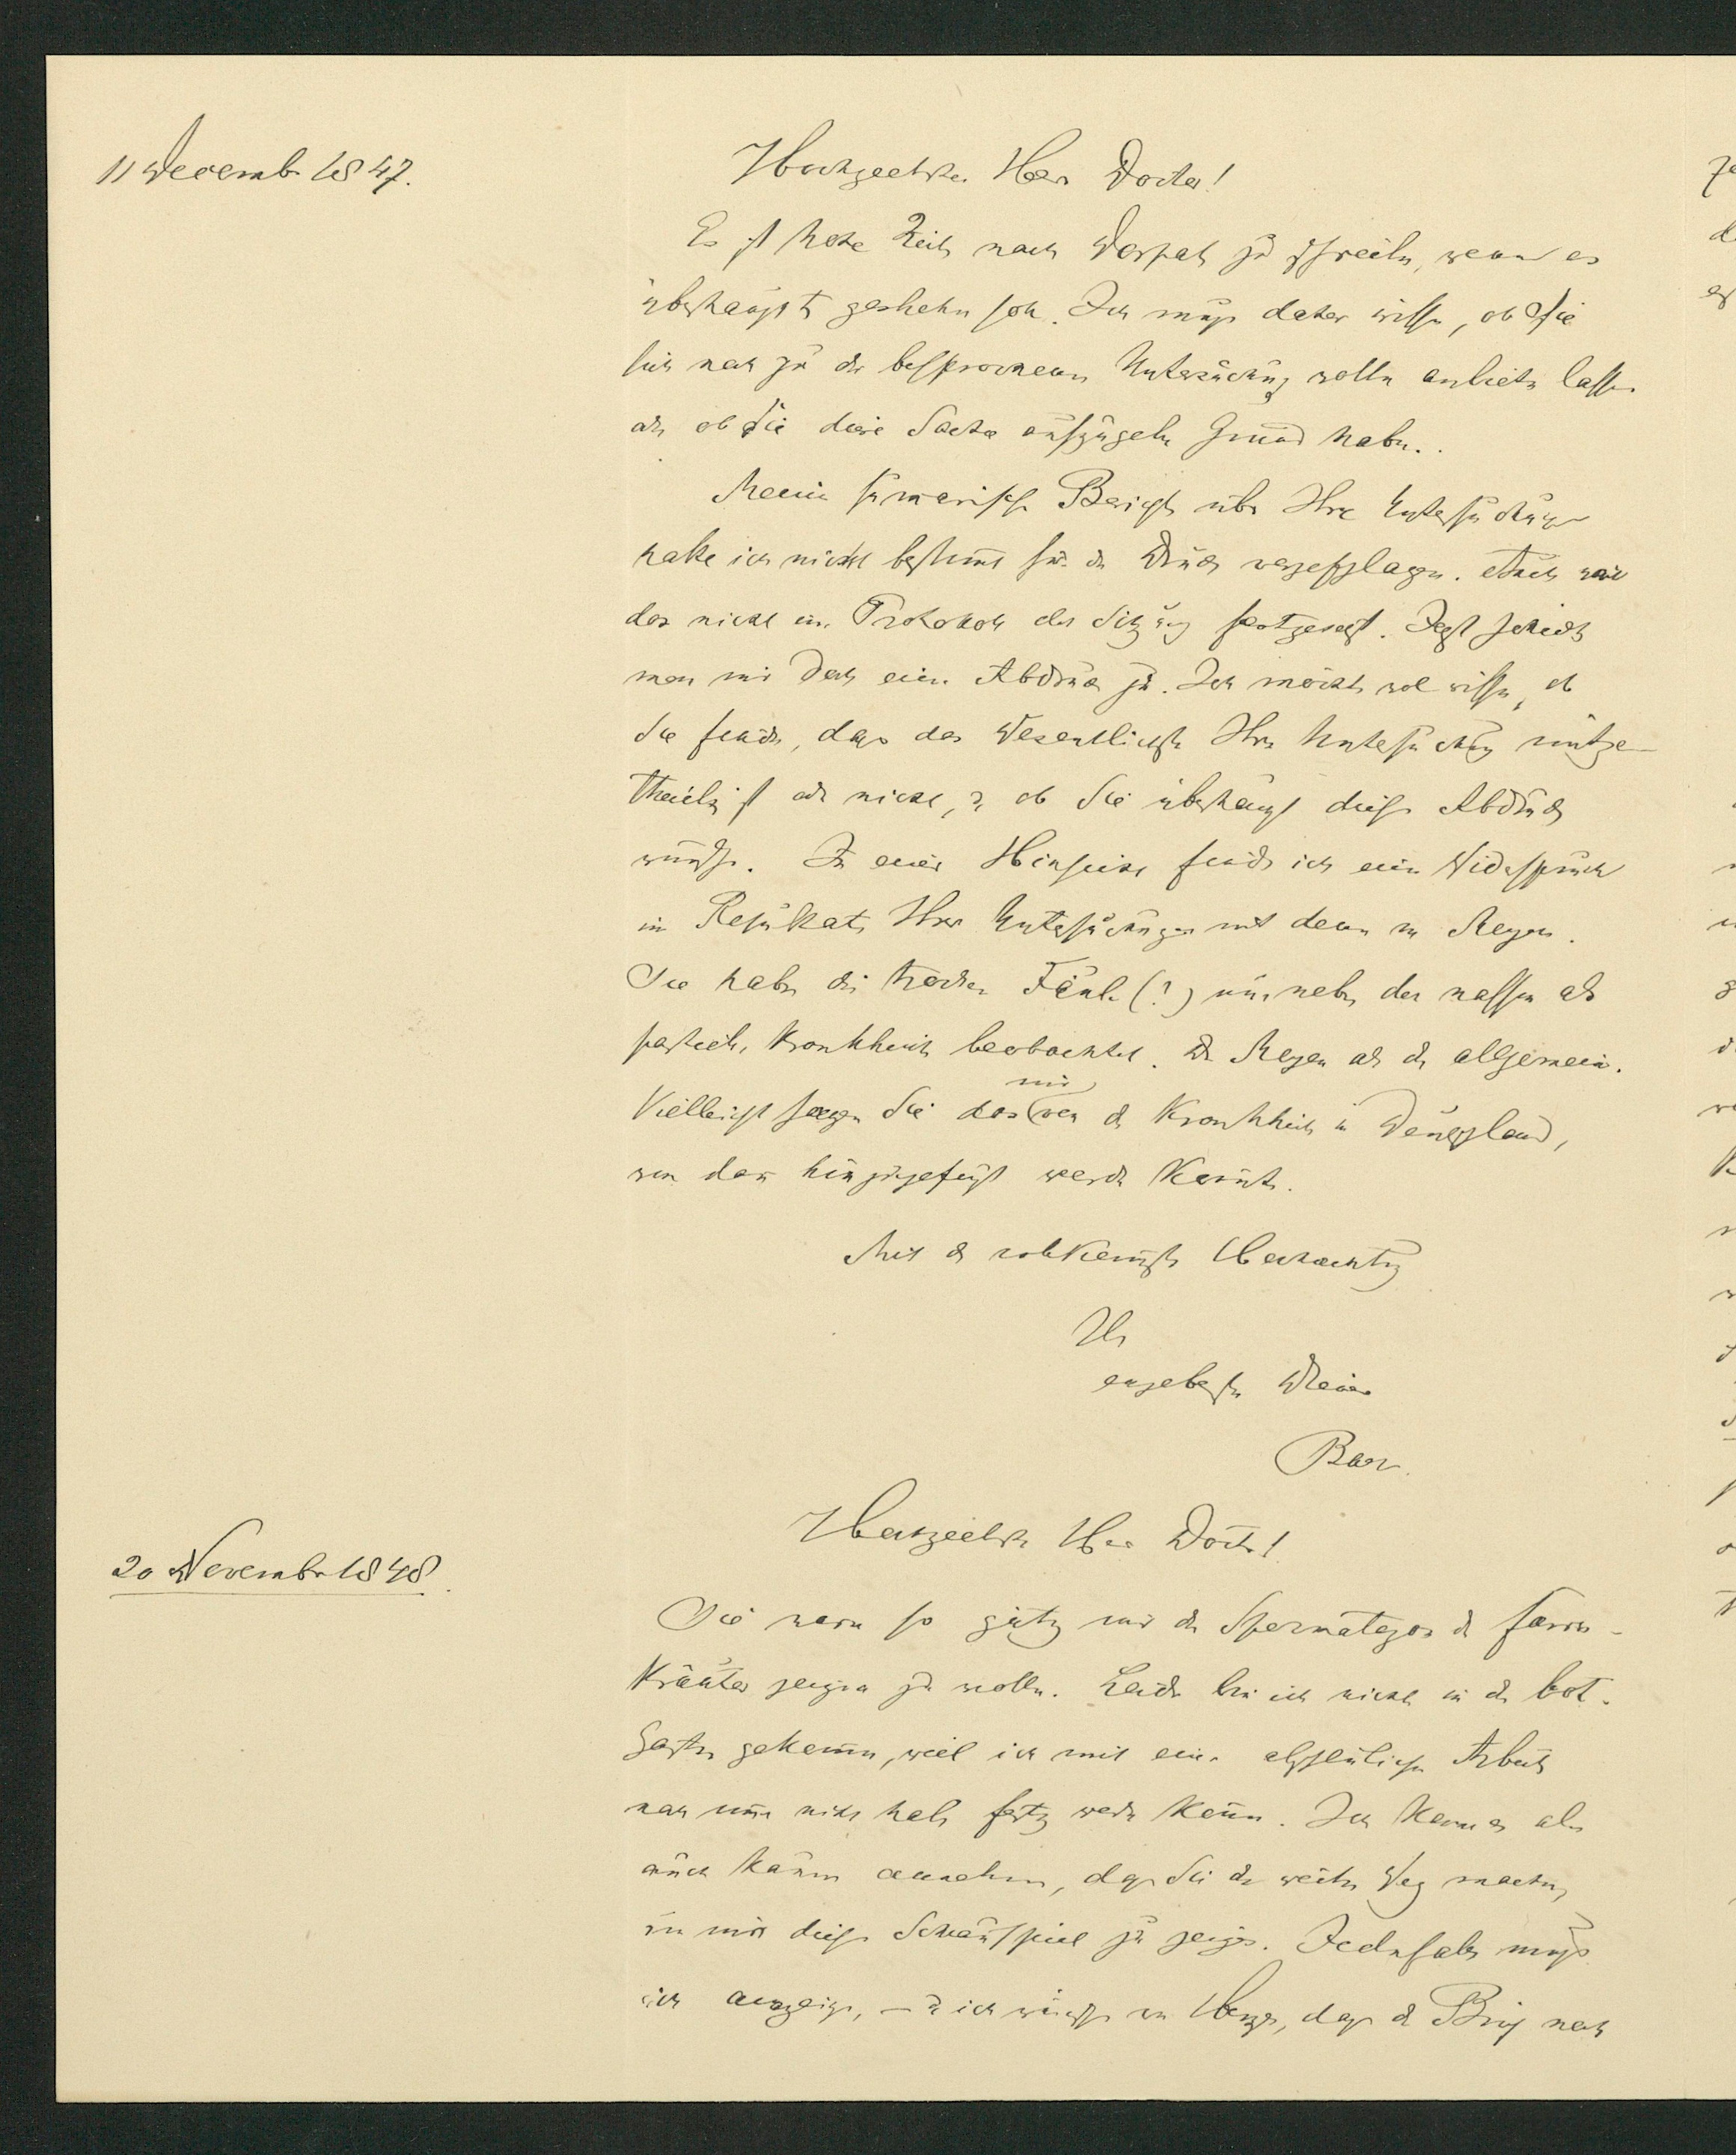 11 Decemb 1847.
Hochgeehrter Herr Doctor!
Es ist hohe Zeit nach Dorpat zu schreiben, wenn es
überhaupt geschehen soll. Ich muss daher wissen, ob Sie
sich noch zu der besprochenen Untersuchung wollen anbieten lassen
oder ob Sie diese Sache aufzugeben Grund haben.
Meinen summarischen Bericht über Ihre Untersuchungen
hatte ich nicht bestimmt für den Druck vorgeschlagen. Auch war
das nicht im Protokoll der Sitzung festgesetzt. Jetzt schickt
man mir doch einen Abdruck zu. Ich möchte wol wissen, ob
Sie finden, dass das Wesentlichste Ihrer Untersuchung mitge-
theilt ist oder nicht, u ob Sie überhaupt diesen Abdruck
wünschen. In einer Hinsicht finde ich einen Widerspruch
im Resultate Ihrer Untersuchungen mit denen von Meyen.
Sie haben die trockene Fäule (?) nur neben der nassen als
partielle Krankheit beobachtet. Dr Meyen als die allgemeine.
Vielleicht sagen Sie das nur von der Krankheit in Deutschland,
was dann hinzugefügt werden könnte.
Mit der vollkommensten Hochachtung
Ihr
ergebenster Diener
Baer.
20 Novemb 1848.
Hochgeehrter Herr Doctor!
Sie waren so gütig mir die Spermatozoen der Farren-
kräuter zeigen zu wollen. Leider bin ich nicht in den bot.
Garten gekommen, weil ich mit einer Arbeit
noch immer nicht habe fertig werden können. Ich kann es aber
auch kaum annehmen, dass Sie den weiten Weg machen,
um mir dieses Schauspiel zu zeigen. Jedenfalls muss
ich anzeigen, — u ich wünsche von Herzen, dass der Brief noch